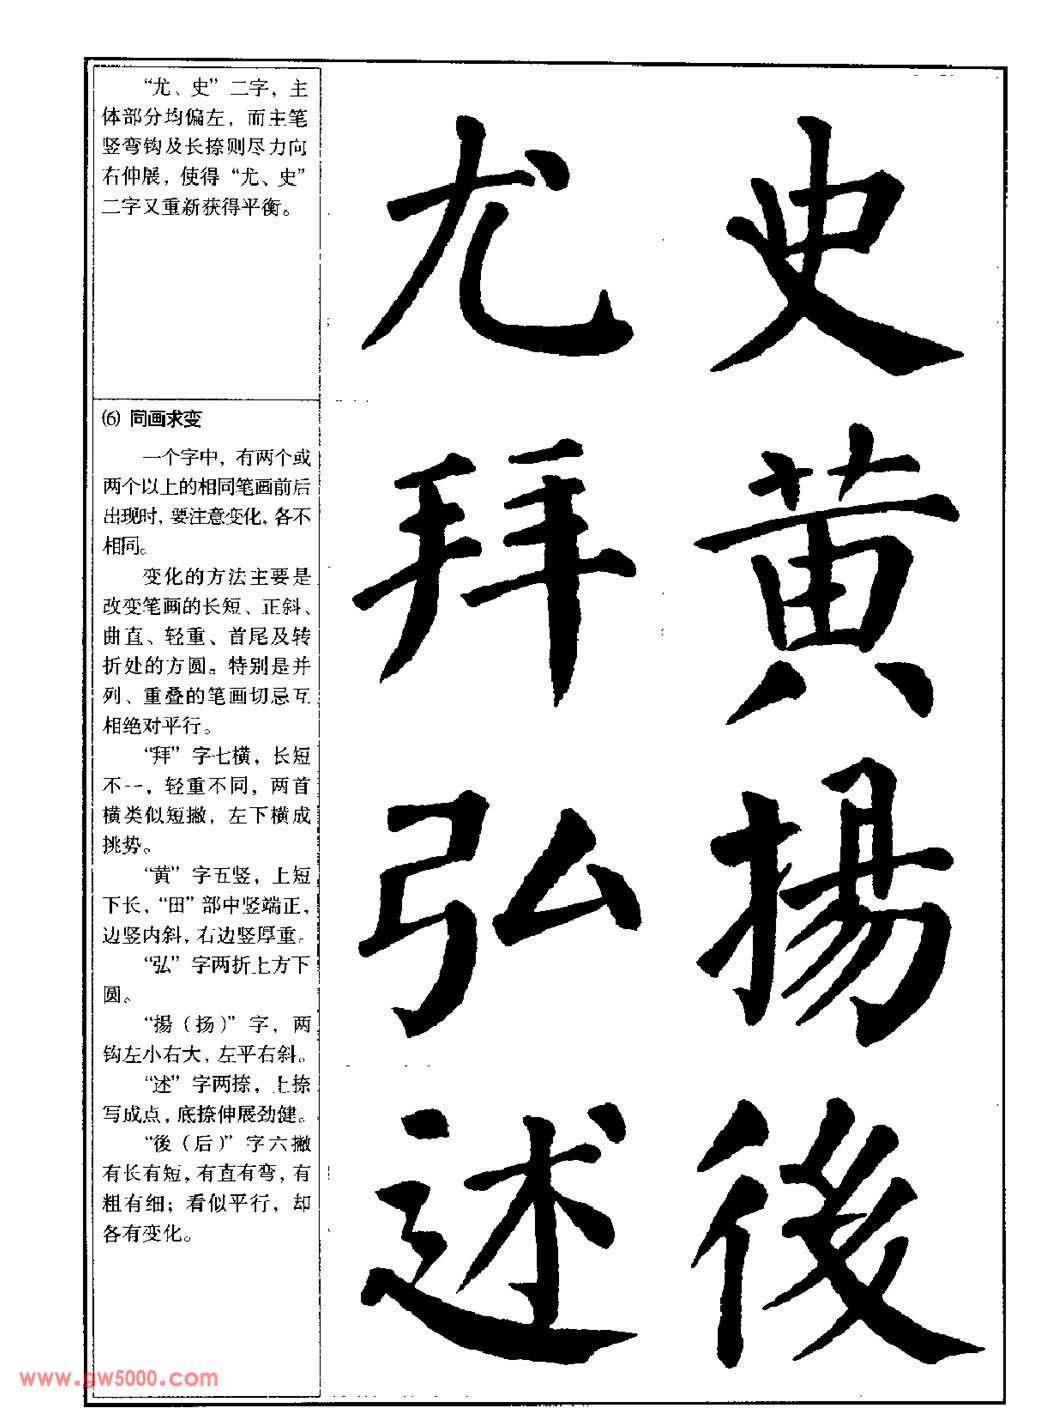 “尤、史”二字，主
体部分均偏左，而主笔
竖弯钩及长捺则尽力向
右伸展，使得“尤、史”
二字又重新获得平衡。
⑹ 同画求变
一个字中，有两个或
两个以上的相同笔画前后
出现时，要注意变化，各不
相同。
变化的方法主要是
改变笔画的长短、正斜、
曲直、轻重、首尾及转
折处的方圆。特别是并
列、重叠的笔画切忌互
相绝对平行。
“拜”字七横，长短
不一，轻重不同，两首
横类似短撇，左下横成
挑势。
“黄”字五竖，上短
下长，“田”部中竖端正，
边竖内斜，右边竖厚重。
“弘”字两折上方下
圆。
“揚（扬）”字，两
钩左小右大，左平右斜。
“述”字两捺，上捺
写成点，底捺伸展劲健。
“後（后）”字六撇
有长有短，有直有弯，有
粗有细；看似平行，却
各有变化。
尤 史
拜 黄
弘 揚
述 後
www.gw5000.com